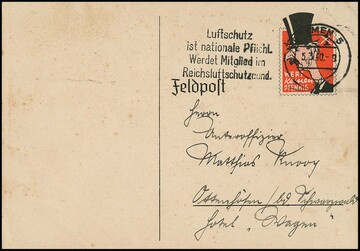 Luftschutz
ist nationale Pflicht.
Werdet Mitglied im
Reichsluftschutzbund.
MEN-5
WERT
PFENNIG
Feldpost
Herrn
Unteroffizier
Matthias Knoop
Ottenhöfen / bd Schwarzwald
Hotel „Wagen"